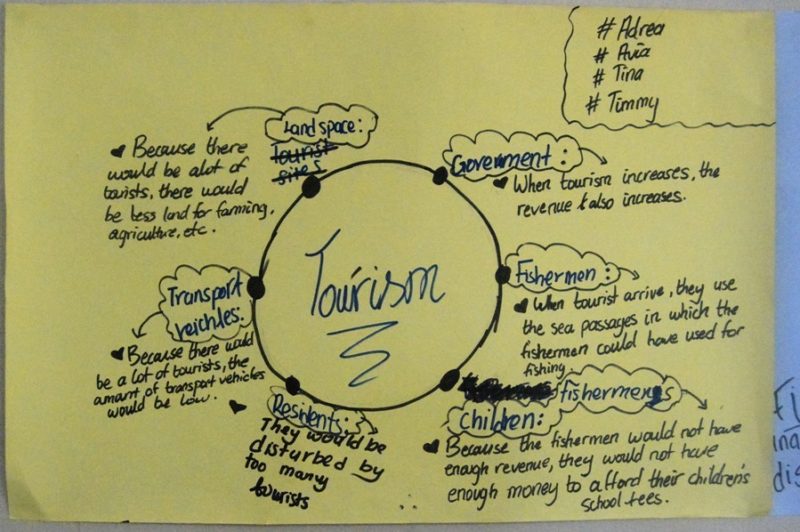 # Adrea
# Avia
# Tina
# Timmy
Land space:
tourist
sites
Because there
would be alot of
tourists, there would
be less land for farming,
agriculture, etc.
Government:
When tourism increases, the
revenue also increases.
Tourism
Fishermen:
When tourist arrive, they use
the sea passages in which the
fishermen could have used for
fishing.
Transport
veichles:
Because there would
be a lot of tourists, the
amount of transport vehicles
would be low.
Residents:
They would be
disturbed by
too many
tourists
fishermens
children:
Because the fishermen would not have
enough revenue, they would not have
enough money to afford their children's
school fees.